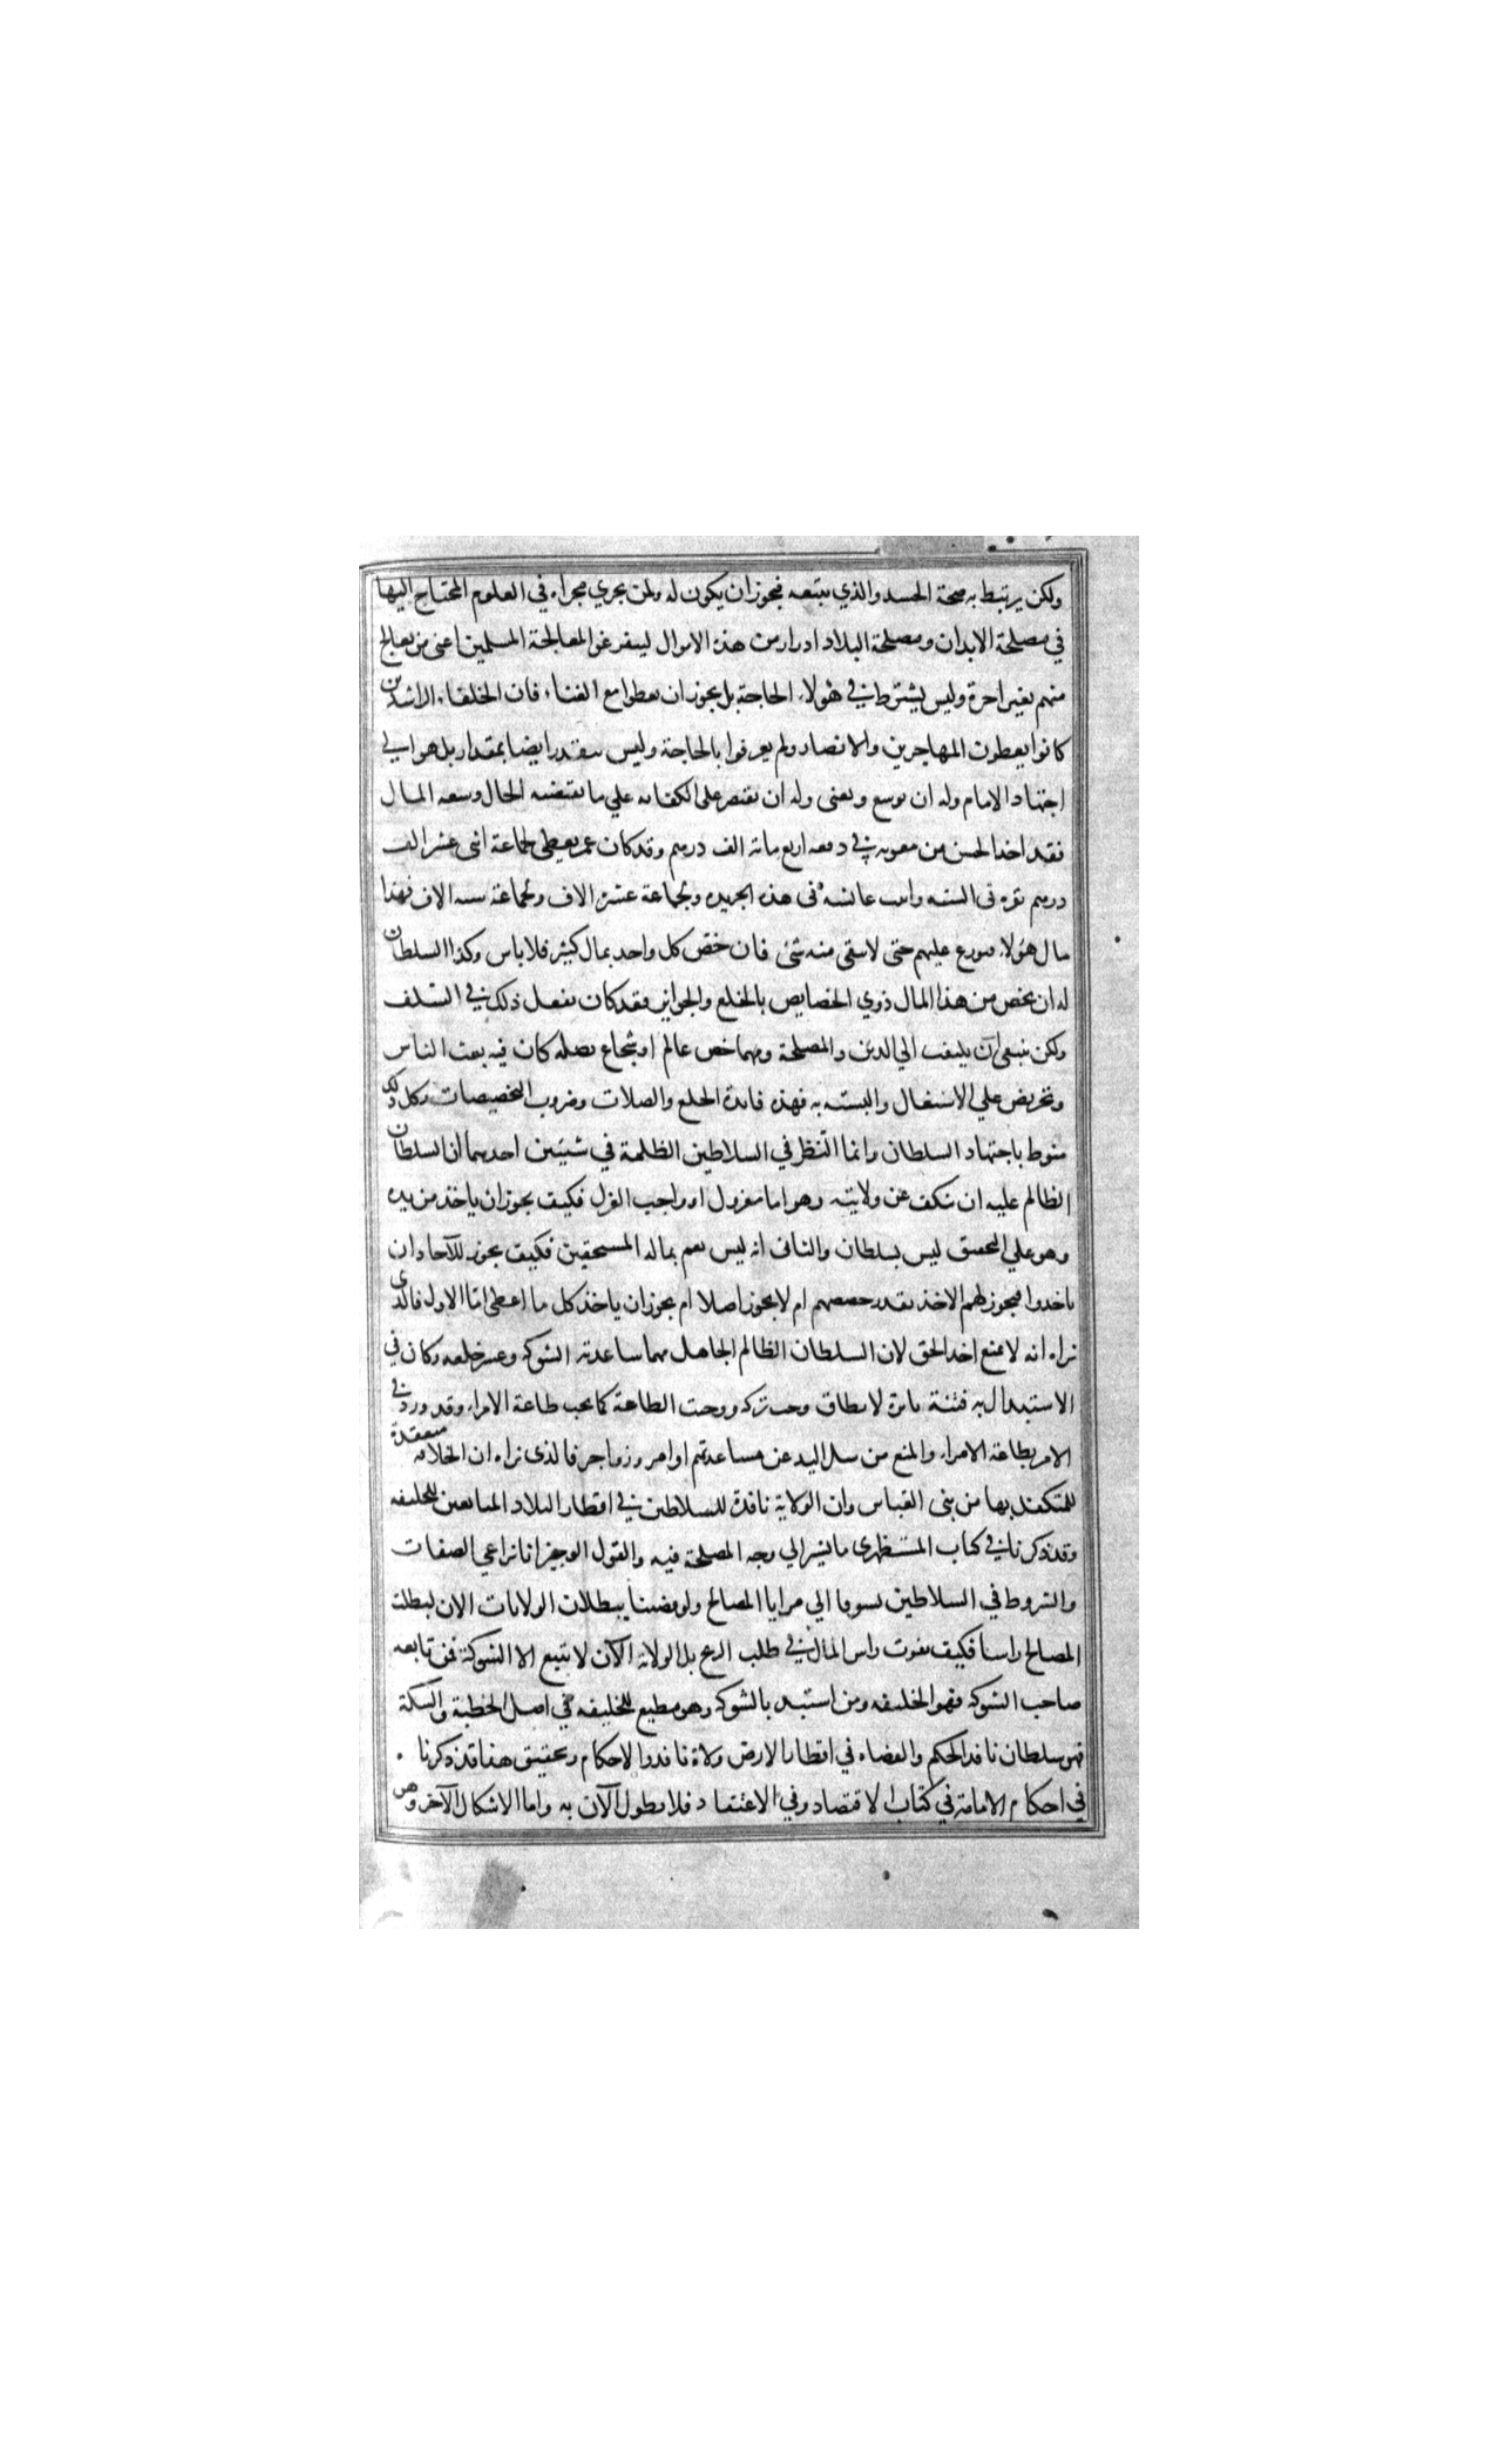 ولكن يرتبط به صحة الجسد والذي يتبعه فيجوز ان يكون له ولمن يجري مجراه في العلوم المحتاج اليها
في مصلحة الابدان ومصلحة البلاد ادرار من هذه الاموال ليتفرغوا لمعالجة المسلمين اعني من يعالج
منهم بغير اجرة وليس يشترط في هولاء الحاجة بل يجوز ان يعطوا مع الغناء فان الخلفاء الراشدين
كانوا يعطون المهاجرين والانصار ولم يعرفوا بالحاجة وليس يتقدر ايضا بمقدار بل هو الي
اجتهاد الامام وله ان يوسع ويغني وله ان يقتصر علي الكفايه علي ما يقتضيه الحال وسعه المال
فقد اخذ الحسن من معويه في دفعه اربع مائة الف درهم وقد كان عمر يعطي لجماعة اثني عشر الف
درهم نقره في السنه واثبت عائشه في هذه الجريده ولجماعة عشرة الاف ولجماعة سته الاف فهذا
مال هؤلاء فيوزع عليهم حتي لا يبقي منه شئ فان خص كل واحد بمال كثير فلا باس وكذا السلطان
له ان يخص من هذا المال ذوي الخصايص بالخلع والجوايز فقد كان يفعل ذلك في السلف
ولكن ينبغي ان يلتفت الي الدين والمصلحة ومهما خص عالم او شجاع بصلة كان فيه بعث الناس
وتحريض علي الاشتغال والتشبه به فهذه فائدة الخلع والصلات وضروب التخصيصات وكل ذلك
منوط باجتهاد السلطان وانما النظر في السلاطين الظلمة في شيئين احدهما ان السلطان
الظالم عليه ان يكف عن ولايته وهو اما معزول او واجب العزل فكيف يجوز ان ياخذ من يده
وهو علي التحقيق ليس بسلطان والثاني انه ليس يعم بماله المستحقين فكيف يجوز للآحاد ان
ياخذوا فيجوز لهم الاخذ بقدر حصصهم ام لا يجوز اصلا ام يجوز ان ياخذ كل ما اعطي اما الاول فالذي
نراه انه لا يمنع اخذ الحق لان السلطان الظالم الجاهل مهما ساعدته الشوكة وعسر خلعه وكان في
الاستبدال به فتنة ثائرة لا يطاق وجب تركه ووجبت الطاعة كما يجب طاعة الامراء وقد ورد في
الامر بطاعة الامراء والمنع من سل اليد عن مساعدتهم اوامر وزواجر فالذي نراه ان الخلافه منعقدة
للمتكفل بها من بني العباس وان الولاية نافذة للسلاطين في اقطار البلاد المبايعين للخليفه
وقد ذكرنا في كتاب المستظهري ما يشير الي وجه المصلحة فيه والقول الوجيز انا نراعي الصفات
والشروط في السلاطين تشوفا الي مزايا المصالح ولو قضينا ببطلان الولايات الان لبطلت
المصالح راسا فكيف يفوت راس المال في طلب الربح بل الولاية الآن لا تتبع الا الشوكة فمن تابعه
صاحب الشوكه فهو الخليفه ومن استبد بالشوكه وهو مطيع للخليفه في اصل الخطبة والسكة
فهو سلطان نافذ الحكم والقضاء في اقطار الارض ولاة نافذوا الاحكام وتحقيق هذا قد ذكرنا
في احكام الامامة في كتاب الاقتصاد في الاعتقاد فلا نطول الآن به واما الاشكال الآخر وهو